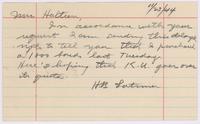 11/27/44
Miss Haltiwn,
In accordance with your
request I am sending this
note to tell you that I purchased
a 1000 bond last Tuesday.
Here's hoping that K.U. goes over
its quota.
H.B. Latimer